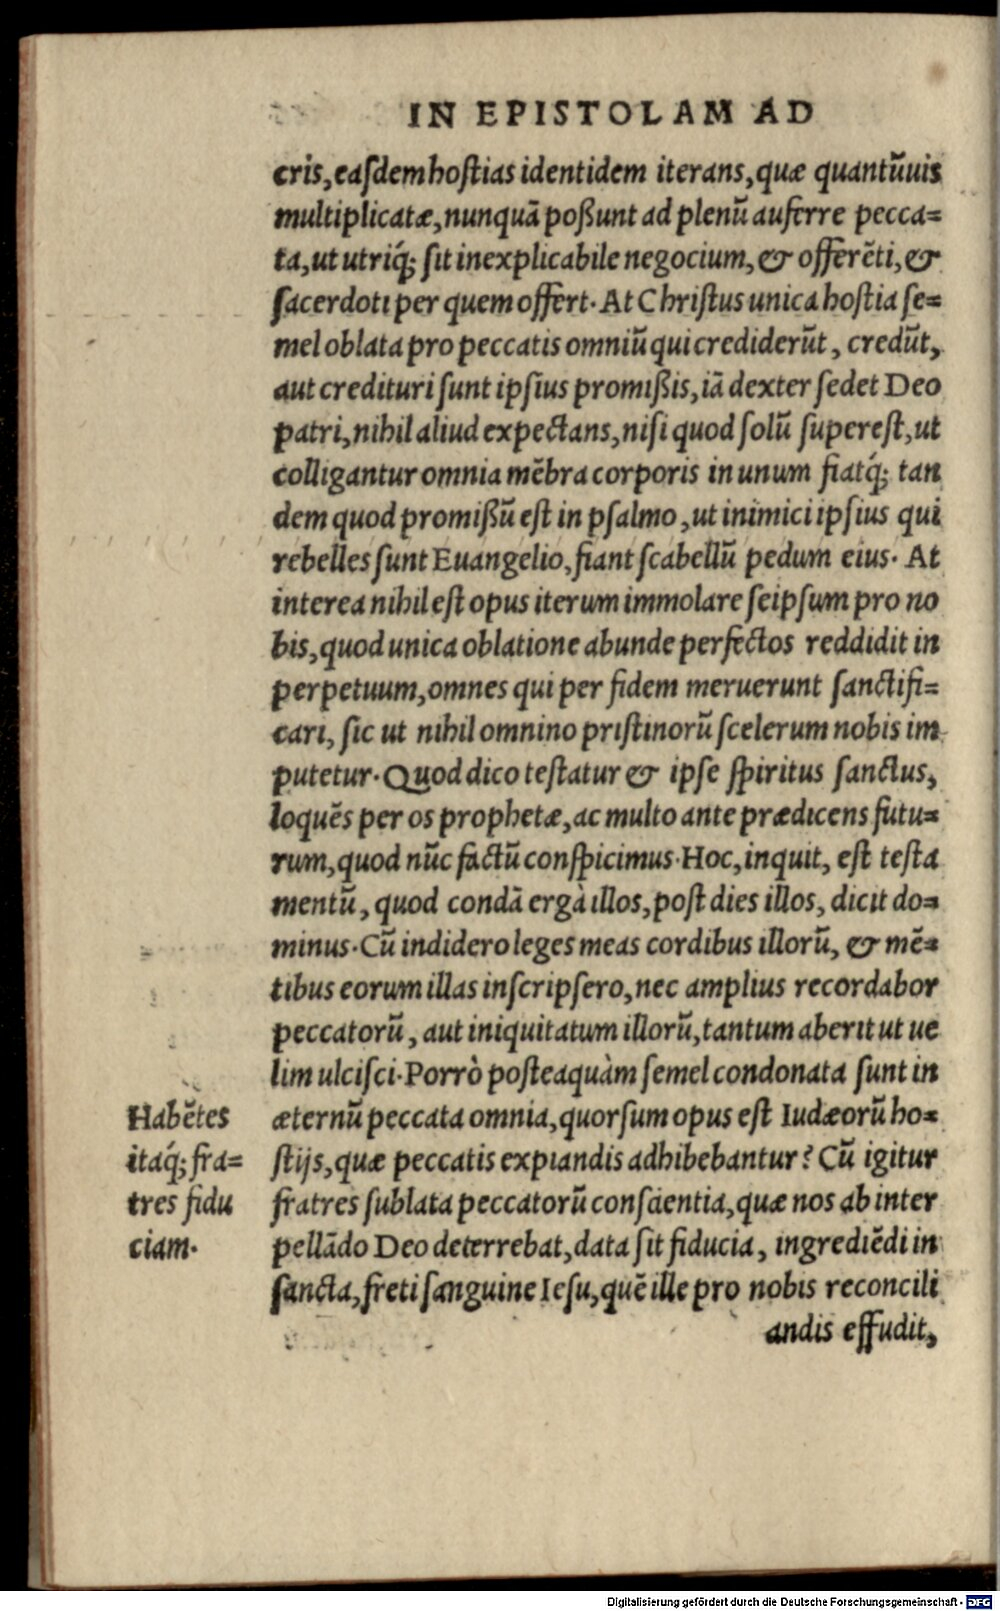 IN EPISTOLAM AD
cris, easdem hostias identidem iterans, quæ quantũuis
multiplicatæ, nunquã poßunt ad plenũ auferre pecca=
ta, ut utriq́; sit inexplicabile negocium, & offerẽti, &
sacerdoti per quem offert. At Christus unica hostia se=
mel oblata pro peccatis omniũ qui crediderũt, credũt,
aut credituri sunt ipsius promißis, iã dexter sedet Deo
patri, nihil aliud expectans, nisi quod solũ superest, ut
colligantur omnia mẽbra corporis in unum fiatq́; tan
dem quod promißũ est in psalmo, ut inimici ipsius qui
rebelles sunt Euangelio, fiant scabellũ pedum eius. At
interea nihil est opus iterum immolare seipsum pro no
bis, quod unica oblatione abunde perfectos reddidit in
perpetuum, omnes qui per fidem meruerunt sanctifi=
cari, sic ut nihil omnino pristinorũ scelerum nobis im
putetur. Quod dico testatur & ipse spiritus sanctus,
loquẽs per os prophetæ, ac multo ante prædicens futu=
rum, quod nũc factũ conspicimus. Hoc, inquit, est testa
mentũ, quod condã ergà illos, post dies illos, dicit do=
minus. Cũ indidero leges meas cordibus illorũ, & mẽ=
tibus eorum illas inscripsero, nec amplius recordabor
peccatorũ, aut iniquitatum illorũ, tantum aberit ut ue
lim ulcisci. Porrò posteaquàm semel condonata sunt in
æternũ peccata omnia, quorsum opus est Iudæorũ ho=
stijs, quæ peccatis expiandis adhibebantur? Cũ igitur
fratres sublata peccatorũ conscientia, quæ nos ab inter
pellãdo Deo deterrebat, data sit fiducia, ingrediẽdi in
sancta, freti sanguine Iesu, quẽ ille pro nobis reconcili
andis effudit,
Habẽtes
itaq́; fra=
tres fidu
ciam.
Digitalisierung gefördert durch die Deutsche Forschungsgemeinschaft - DFG